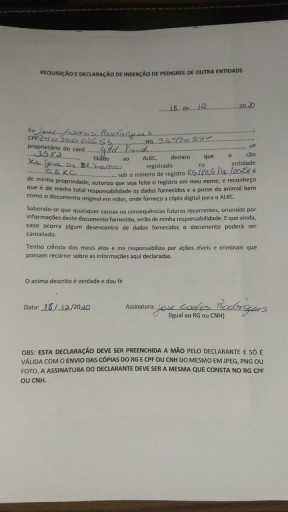 REQUISIÇÃO E DECLARAÇÃO DE INSERÇÃO DE PEDIGREE DE OUTRA ENTIDADE
15 de 12 2020
Eu Jose Carlos Rodrigues
CPF RG
proprietário do canil nº
3982 filiado ao ALKC, declaro que o cão
registrado na entidade
sob o número de registro e
de minha propriedade, autorizo que seja feito o registro em meu nome, e reconheço
que é de minha total responsabilidade os dados fornecidos e a posse do animal bem
como o documento original em mãos, onde forneço a cópia digital para o ALKC.
Sabendo-se que quaisquer causas ou consequências futuras recorrentes, oriundos por
informações deste documento fornecido, serão de minha responsabilidade. E que ainda,
caso ocorra algum desencontro de dados fornecidos o documento poderá ser
cancelado.
Tenho ciência dos meus atos e me responsabilizo por ações cíveis e criminais que
possam recorrer sobre as informações aqui declaradas.
O acima descrito é verdade e dou fé
Data: 15/12/2020 Assinatura: Jose Carlos Rodrigues
(Igual ao RG ou CNH)
OBS: ESTA DECLARAÇÃO DEVE SER PREENCHIDA A MÃO PELO DECLARANTE E SÓ É
VÁLIDA COM O ENVIO DAS CÓPIAS DO RG E CPF OU CNH DO MESMO EM JPEG, PNG OU
FOTO. A ASSINATURA DO DECLARANTE DEVE SER A MESMA QUE CONSTA NO RG CPF
OU CNH.